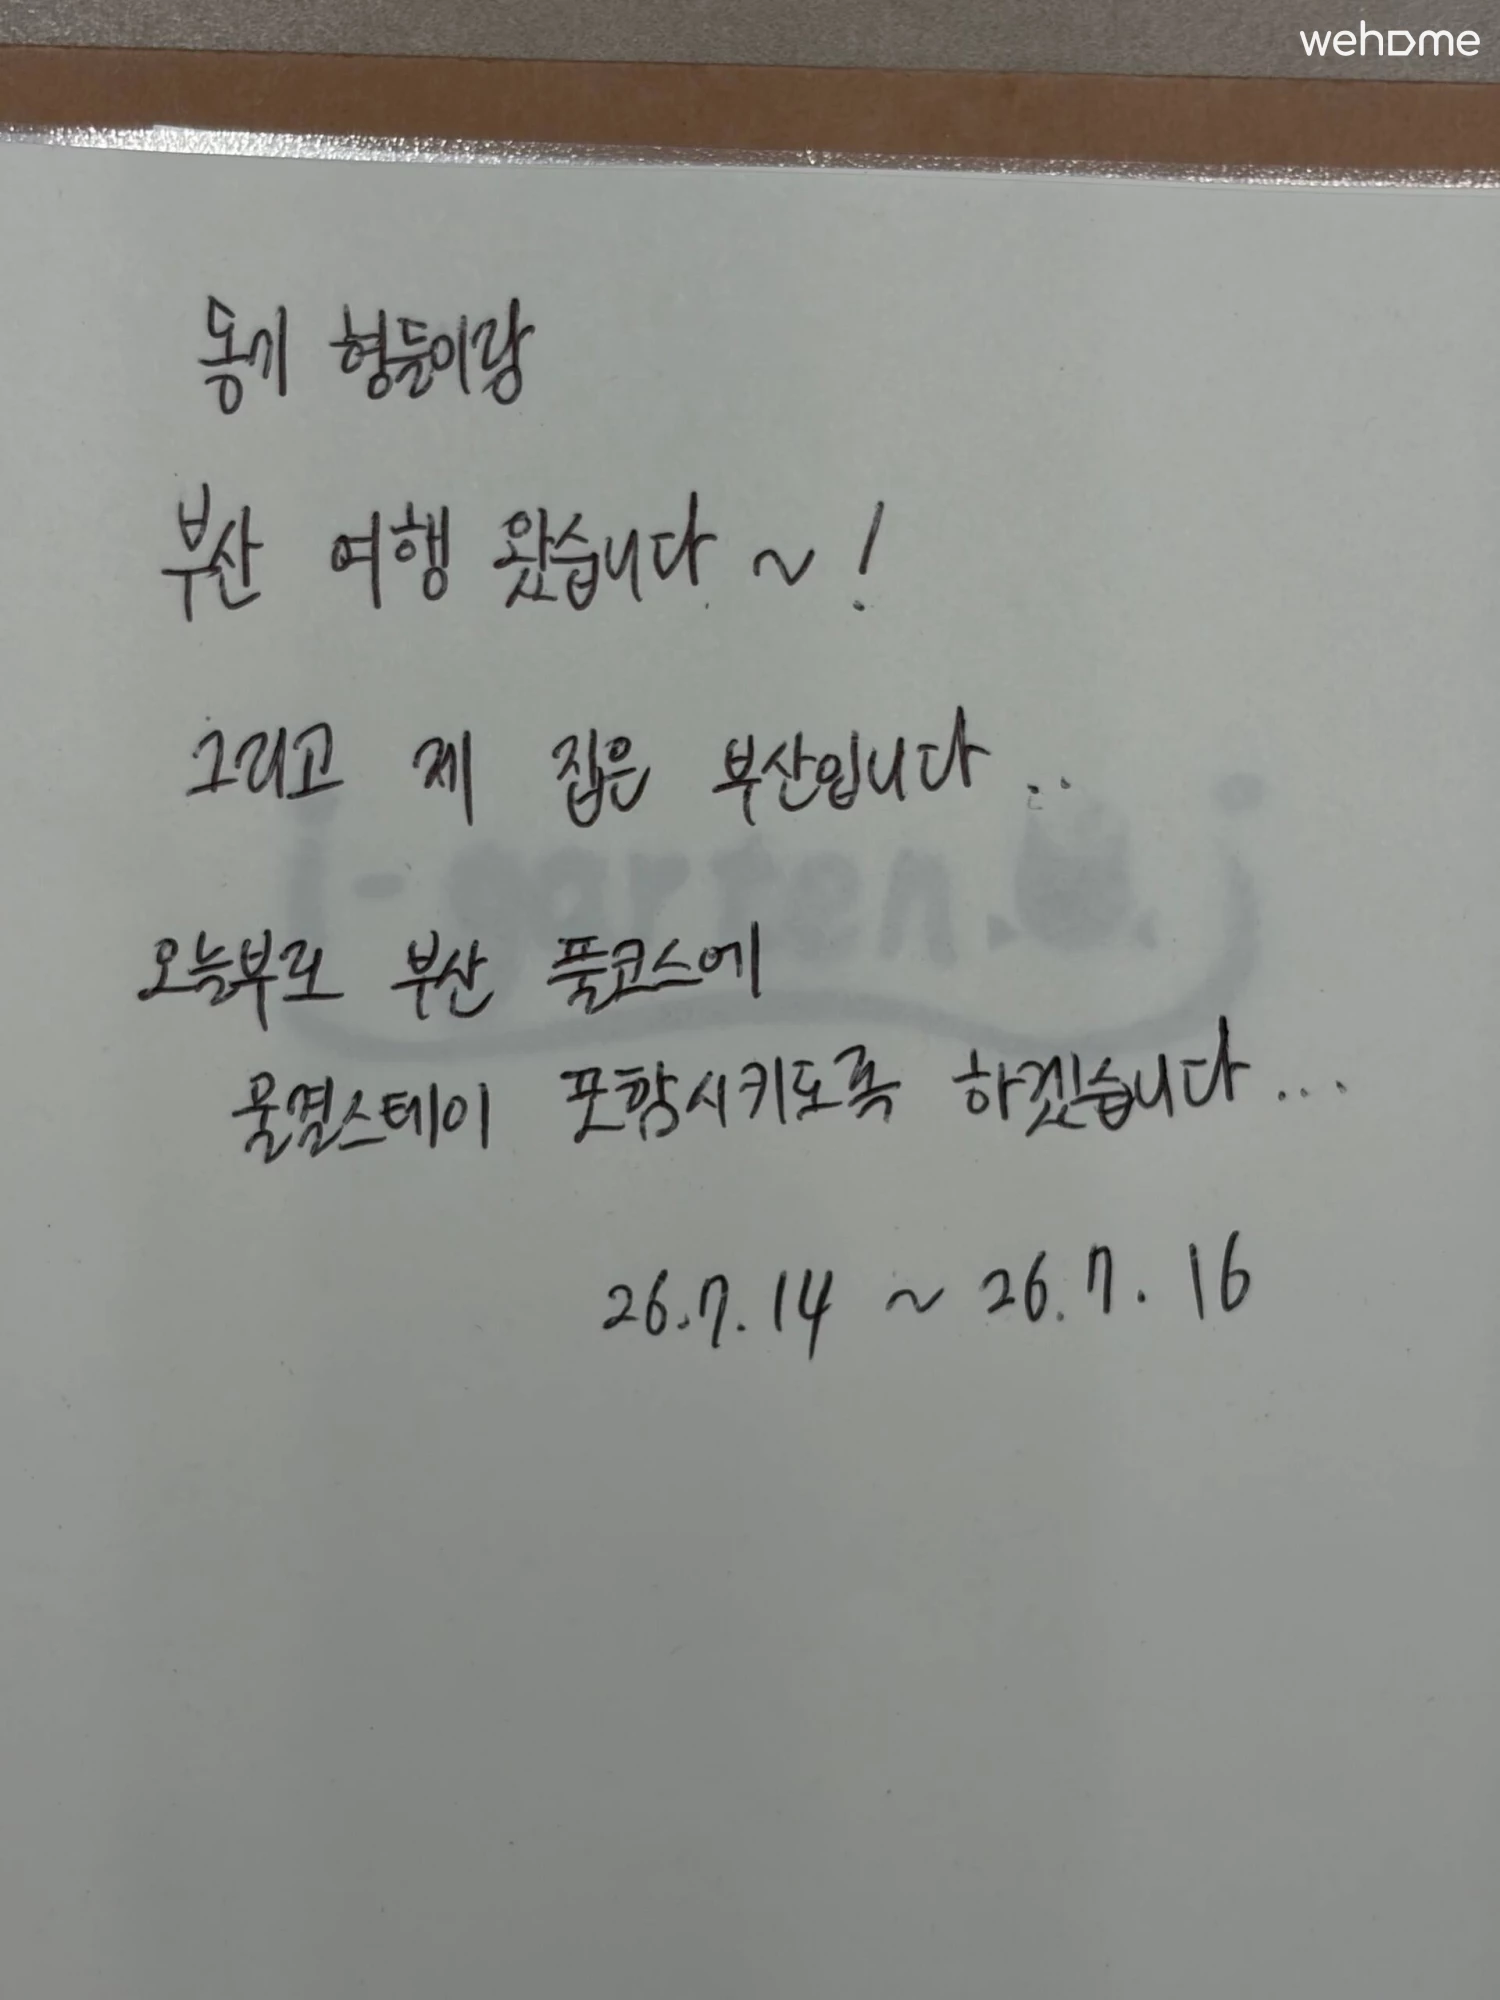 wehome
동기 형들이랑
부산 여행 왔습니다 ~!
그리고 제 집은 부산입니다..
i-garten
오늘부로 부산 풀코스에
물결스테이 포함시키도록 하겠습니다...
26.7.14 ~ 26.7.16